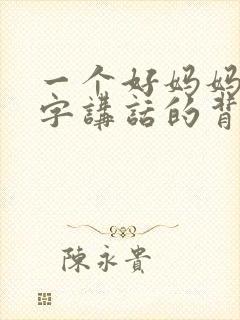 一个好妈妈
字講話的背
陳永貴